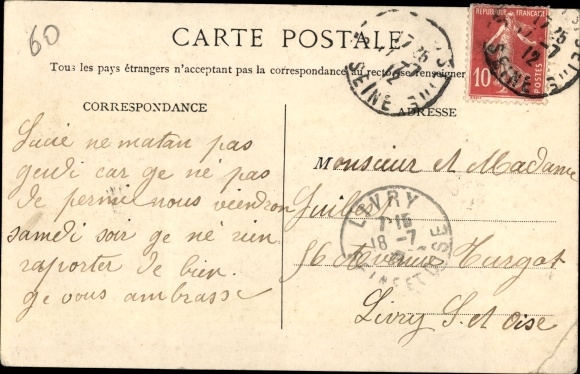 60
CARTE POSTALE
Tous les pays étrangers n'acceptant pas la correspondance au recto, se renseigner
RÉPUBLIQUE FRANÇAISE
10
POSTES
SEINE
CORRESPONDANCE
ADRESSE
Lucie ne matan pas
geudi car ge né pas
de permi nous viendron
samedi soir ge né rien
raporter de bien
ge vous ambrasse
Monsieur et Madame
56 Avenue Turgot
Livry S. et Oise
LIVRY
7 15
18 -7
SEINE ET OISE